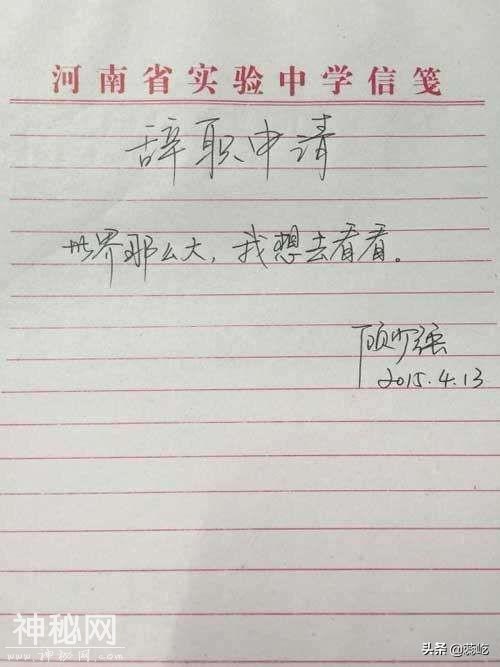 河南省实验中学信笺
辞职申请
世界那么大，我想去看看。
顾少强
2015.4.13
神秘网
www.shenmiw.com
头条 @蕗屹